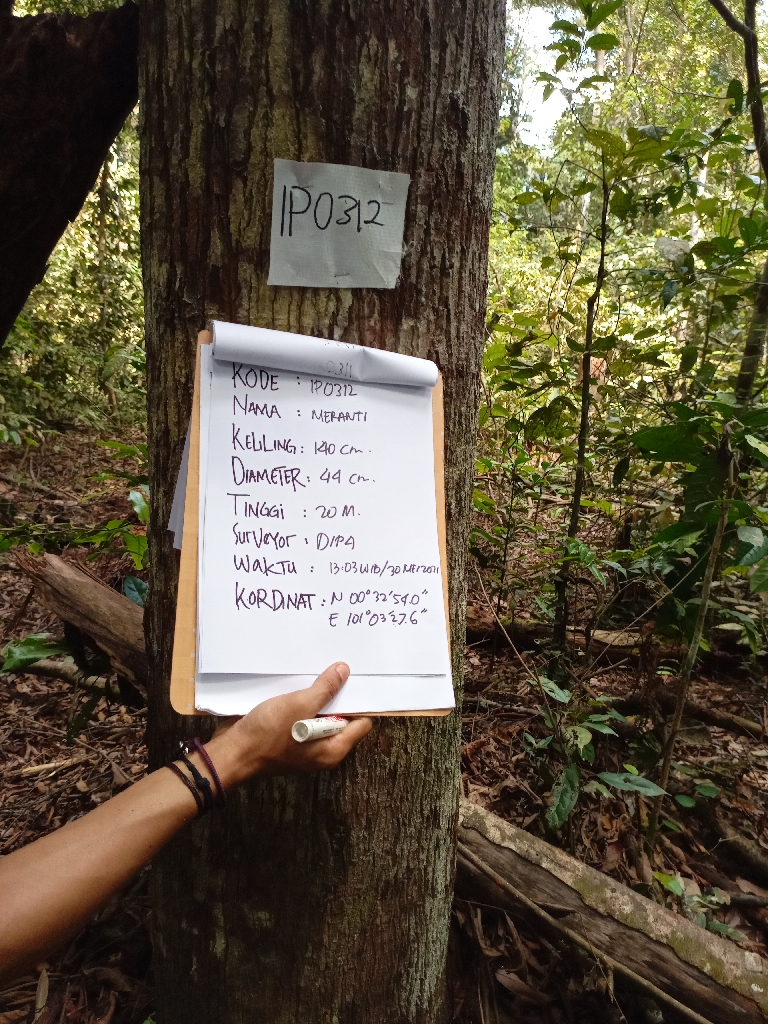 IP0312
0311
KODE : IP0312
NAMA : MERANTI
KELILING : 140 cm.
DIAMETER : 44 cm.
TINGGI : 20 M.
SURVEYOR : DIPA
WAKTU : 13:03 WIB/30 MEI 2021
KORDINAT : N 00°32'54.0"
E 101°03'27.6"